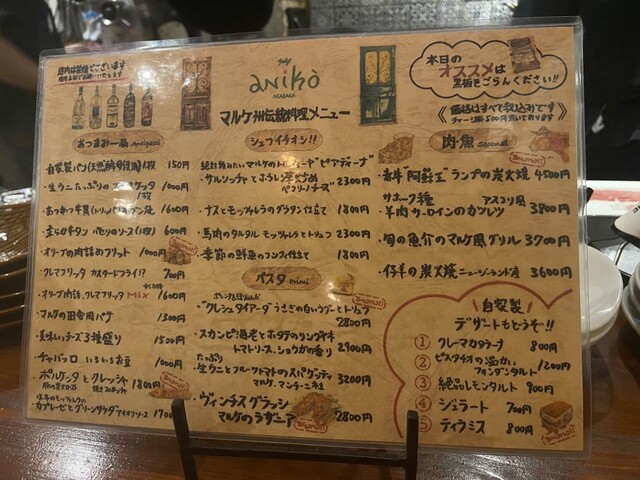 anikò
AKASAKA
マルケ州伝統料理メニュー
本日の
オススメは
黒板をごらんください!!
価格はすべて税込みです
チャージ料500円頂いております
おつまみ一品 Antipasti
・自家製パン(天然酵母使用)1枚 150円
・生ウニたっぷりのブルスケッタ 1枚 1000円
1600円
1600円
・オリーブの肉詰めフリット 1000円
クレマフリッタ カスタードフライ!? 700円
・オリーブ肉詰、クレマフリッタ MIX 1600円
・マルケの田舎風パテ 1300円
・美味しいチーズ3種盛り 1500円
・チャバっロ いろいろお豆 1000円
・ポルケッタとクレッシャ 1800円
カプレーゼとグリーンサラダ 1700
シェフイチオシ!!
2300円
ペコリーノチーズ
・ナスとモッツァレラのグラタン仕立て 1800円
・馬肉のタルタル モッツァレラとトリュフ 2300円
・季節の鮮魚のフンギソース仕立て 1800円
パスタ primi
"クレシュタイアーダ"うさぎの白いラグーとトリュフ
2800円
・スカンピ海老とホタテのリングイネ
トマトソース、ショウガの香り 2900円
たっぷり
・生ウニとフルーツトマトのスパゲッティ
3200円
・ヴィンチスグラッシ
マルケのラザニア 2800円
肉・魚 Secondi
・赤牛"阿蘇王"ランプの炭火焼 4500円
サホーク種 アスコリ風
・羊肉カーロインのカツレツ 3800円
・旬の魚介のマルケ風グリル 3700円
・仔羊の炭火焼 ニュージーランド産 3600円
自家製
デザートもどうぞ!!
① クレマカタラーナ 800円
② ピスタチオの温かい
フォンダンタルト 1200円
③ 絶品レモンタルト 900円
④ ジェラート 700円
⑤ ティラミス 800円
Buono!!